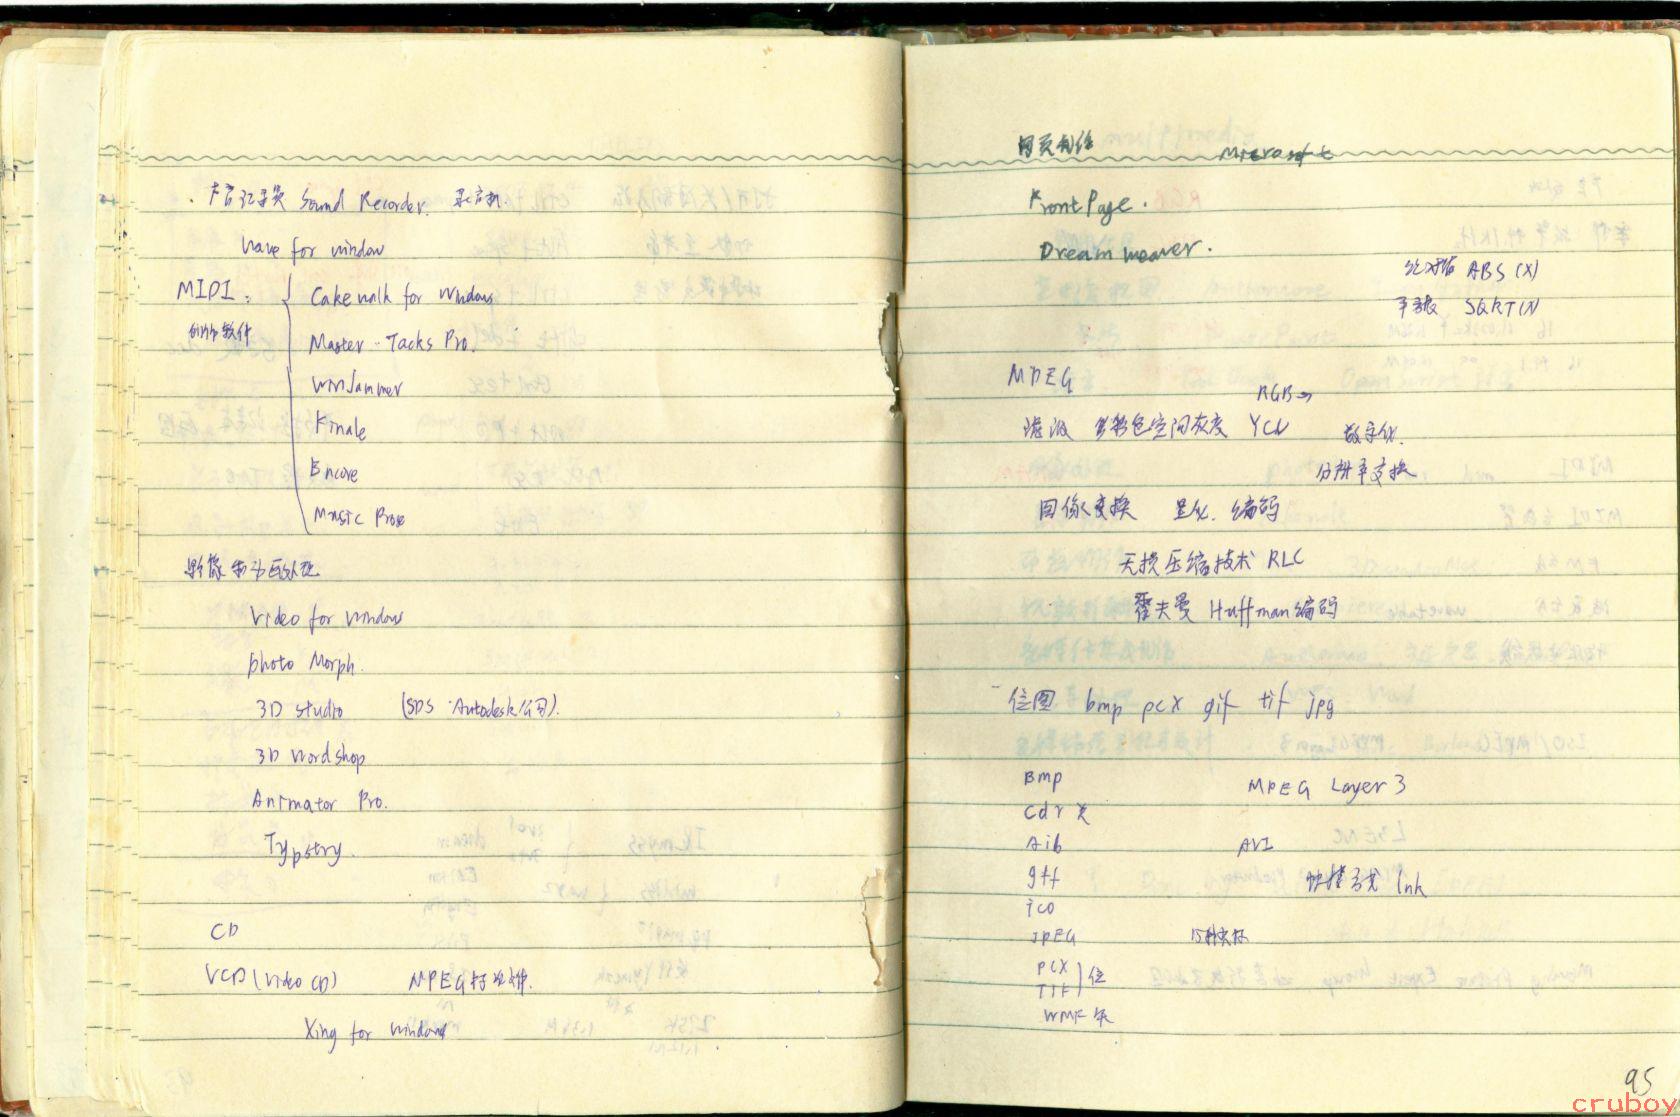 声音记录员 Sound Recorder. 录音机
Wave for window
MIDI: Cakewalk for Windows
创作软件
Master Tacks Pro.
WinJammer
Finale
Encore
Music Prose
影像和动画处理
Video for Windows
photo Morph.
3D studio (SDS Autodesk公司).
3D Wordshop
Animator Pro.
Typstry.
CD
VCD (Video CD) MPEG
Xing for windows
网页制作 Microsoft
FrontPage.
Dream weaver.
绝对值 ABS (X)
平方根 SQRT(X)
MPEG
RGB→
滤波 彩色空间灰度 YCU 数字化.
分辨率变换
图像变换 量化. 编码
无损压缩技术 RLC
霍夫曼 Huffman编码
位图 bmp pcx gif tif jpg
Bmp MPEG Layer 3
Cdr 矢
Aib AVI
gif 快捷方式 lnk
ico
JPEG
PCX
TIF 位
WMF 矢
95
cruboy